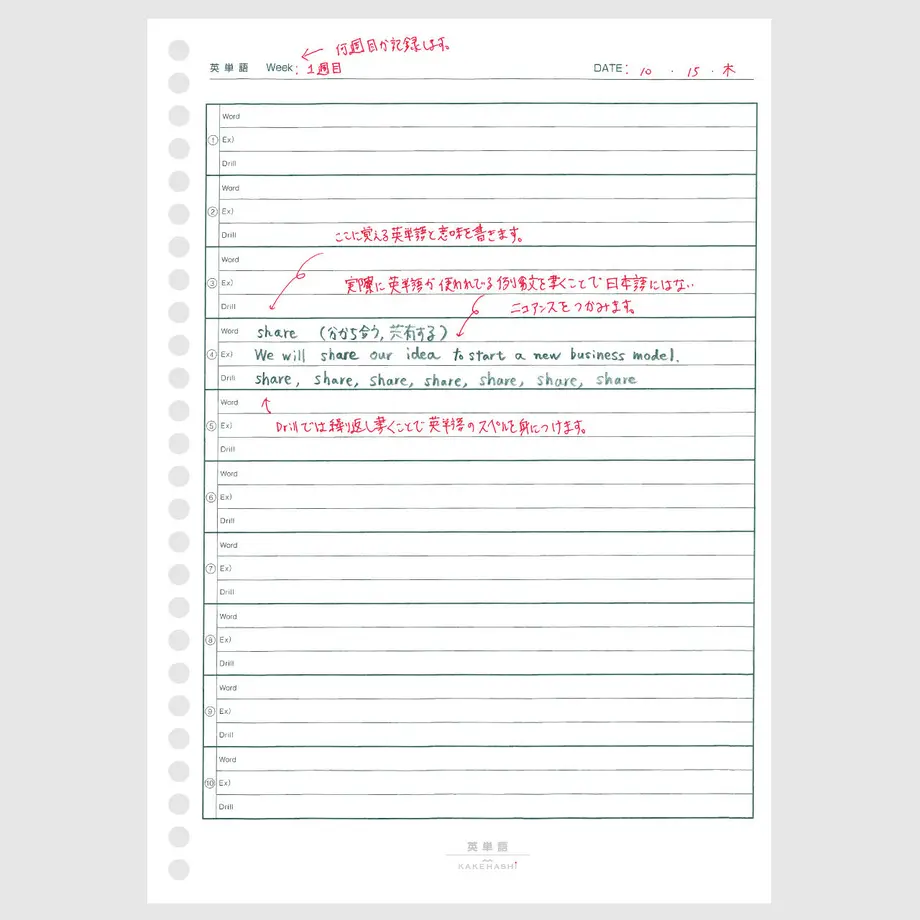 何週目か記録します。
英単語 Week: 1週目 DATE: 10 . 15 . 木
Word
① Ex)
Drill
Word
② Ex)
Drill
ここに覚える英単語と意味を書きます。
Word
③ Ex)
実際に英単語が使われている例文を書くことで日本語にはない
Drill
ニュアンスをつかみます。
Word share (分かち合う, 共有する)
④ Ex) We will share our idea to start a new business model.
Drill share, share, share, share, share, share, share
Word
⑤ Ex)
Drillでは繰り返し書くことで英単語のスペルを身につけます。
Drill
Word
⑥ Ex)
Drill
Word
⑦ Ex)
Drill
Word
⑧ Ex)
Drill
Word
⑨ Ex)
Drill
Word
⑩ Ex)
Drill
英単語
KAKEHASHI